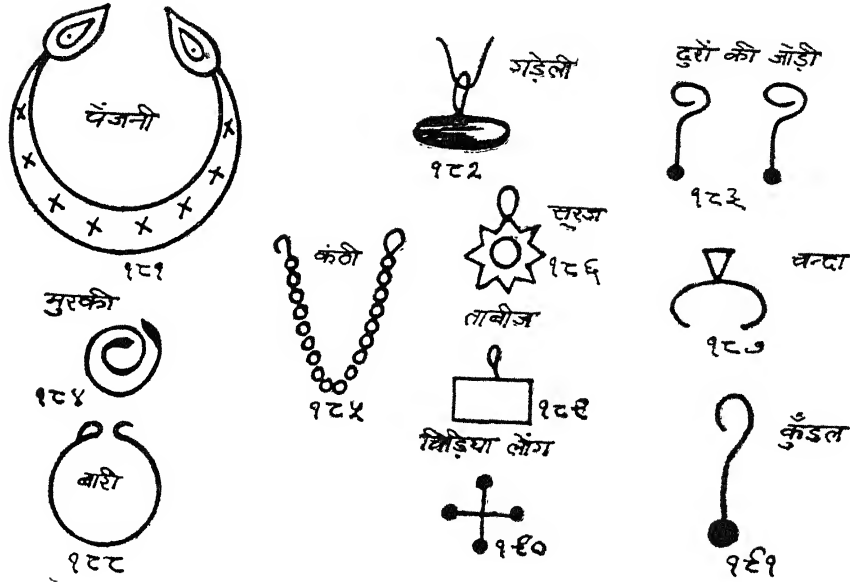 पैंजनी
१८१
गड़ेली
१८२
दुरों की जोड़ी
१८३
मुरकी
१८४
कंठी
१८५
सूरज
१८६
चन्दा
१८७
बारी
१८८
ताबीज़
१८९
चिड़िया लोंग
१९०
कुँडल
१९१